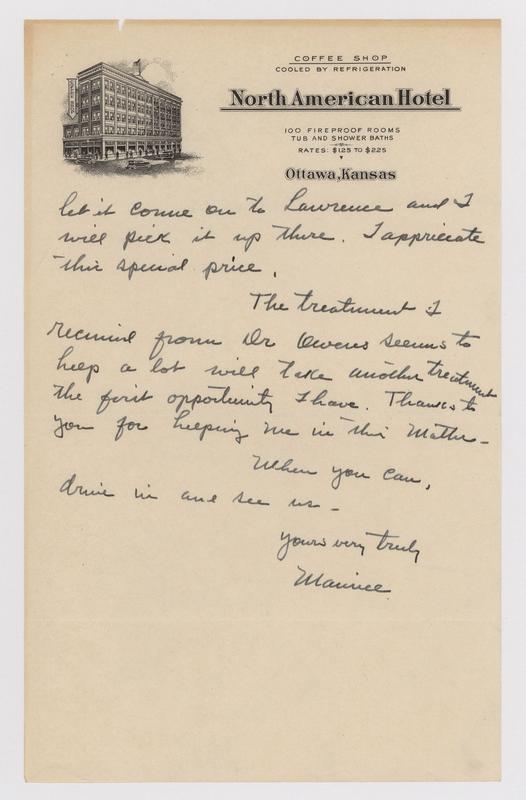 COFFEE SHOP
COOLED BY REFRIGERATION
North American Hotel
100 FIREPROOF ROOMS
TUB AND SHOWER BATHS
RATES: $1.25 TO $2.25
Ottawa, Kansas
let it come on to Lawrence and I
will pick it up there. I appriciate
this special price.
The treatment I
received from Dr Owens seems to
help a lot will take another treatment
the first opportunity I have. Thanks to
you for helping me in this Matter -
When you can,
drive in and see us -
Yours very truly
Maurice